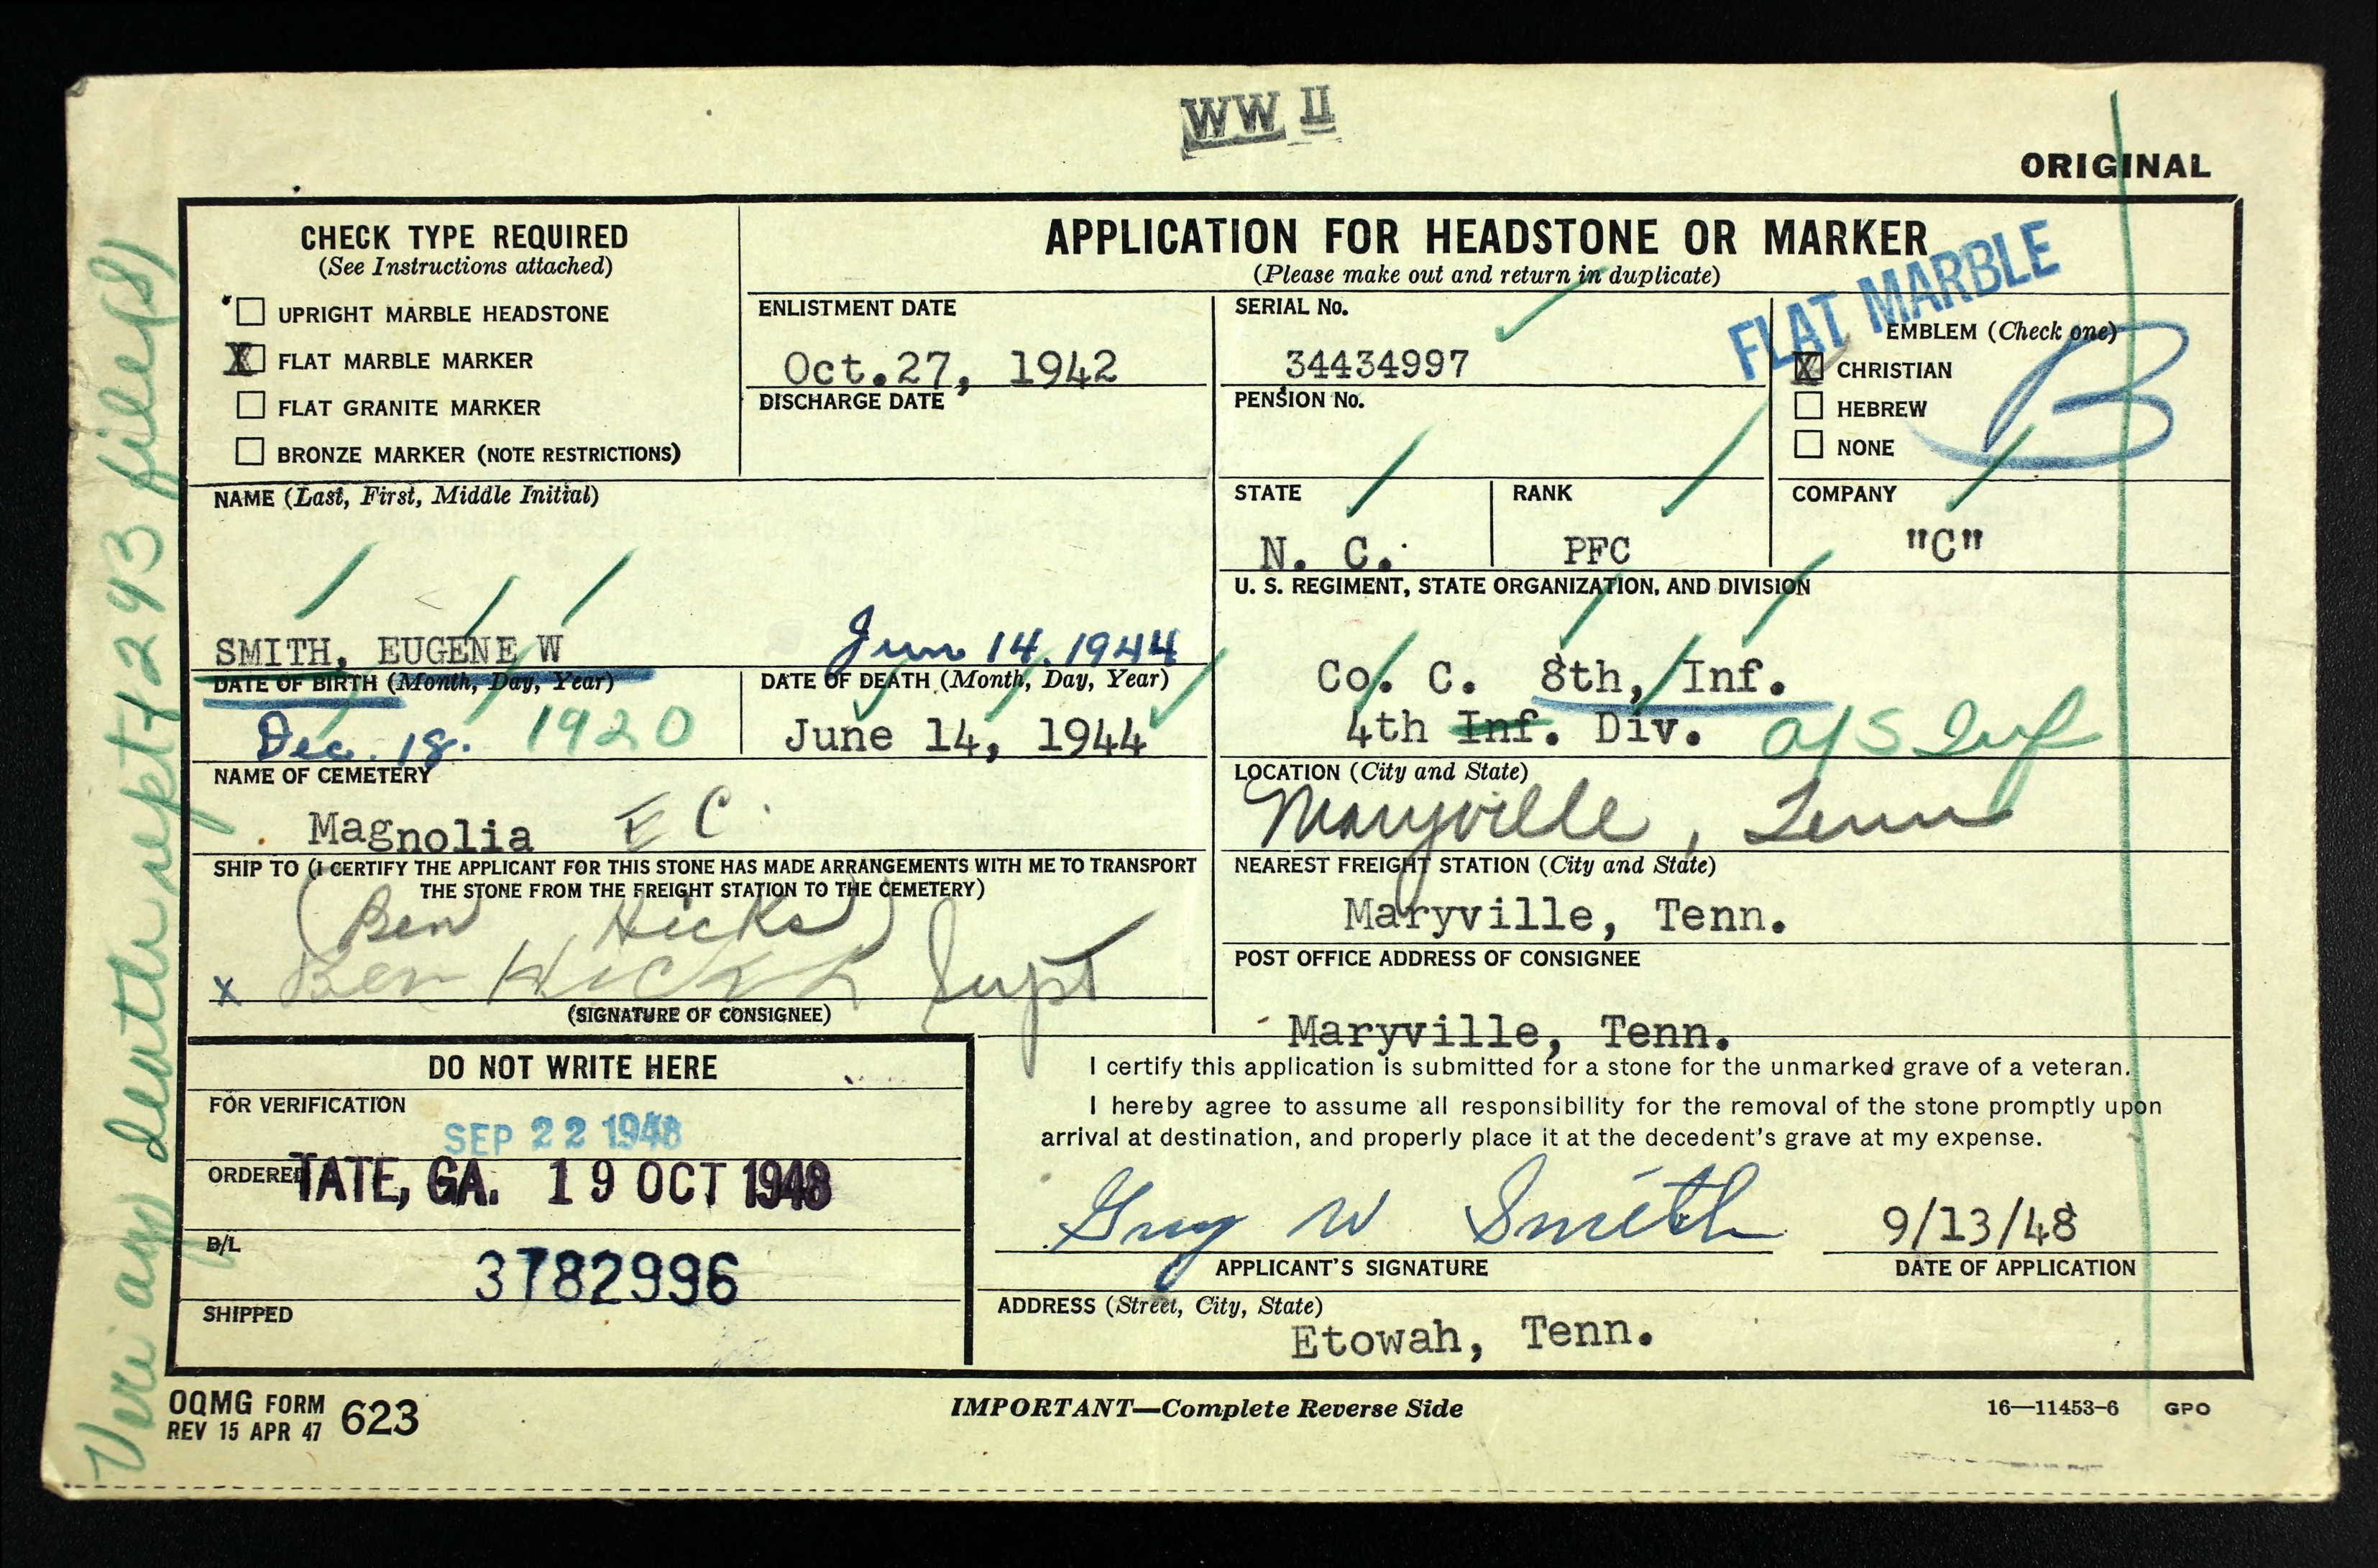 WW II
ORIGINAL
CHECK TYPE REQUIRED
(See Instructions attached)
UPRIGHT MARBLE HEADSTONE
X FLAT MARBLE MARKER
FLAT GRANITE MARKER
BRONZE MARKER (NOTE RESTRICTIONS)
APPLICATION FOR HEADSTONE OR MARKER
(Please make out and return in duplicate)
FLAT MARBLE
ENLISTMENT DATE
Oct.27, 1942
DISCHARGE DATE
SERIAL No.
34434997
PENSION No.
EMBLEM (Check one)
X CHRISTIAN
HEBREW
NONE
B
NAME (Last, First, Middle Initial)
SMITH, EUGENE W
STATE
N. C.
RANK
PFC
COMPANY
"C"
U. S. REGIMENT, STATE ORGANIZATION, AND DIVISION
Co. C. 8th, Inf.
4th Inf. Div. O/S Inf
Jun 14, 1944
DATE OF BIRTH (Month, Day, Year)
Dec. 18. 1920
DATE OF DEATH (Month, Day, Year)
June 14, 1944
NAME OF CEMETERY
Magnolia E C
LOCATION (City and State)
Maryville, Tenn
SHIP TO (I CERTIFY THE APPLICANT FOR THIS STONE HAS MADE ARRANGEMENTS WITH ME TO TRANSPORT
THE STONE FROM THE FREIGHT STATION TO THE CEMETERY)
(Ben Hicks)
x Ben Hicks Supt
(SIGNATURE OF CONSIGNEE)
NEAREST FREIGHT STATION (City and State)
Maryville, Tenn.
POST OFFICE ADDRESS OF CONSIGNEE
Maryville, Tenn.
DO NOT WRITE HERE
FOR VERIFICATION
SEP 22 1948
ORDERED
TATE, GA. 19 OCT 1948
B/L
3782996
SHIPPED
I certify this application is submitted for a stone for the unmarked grave of a veteran.
I hereby agree to assume all responsibility for the removal of the stone promptly upon
arrival at destination, and properly place it at the decedent's grave at my expense.
Guy W Smith
APPLICANT'S SIGNATURE
9/13/48
DATE OF APPLICATION
ADDRESS (Street, City, State)
Etowah, Tenn.
OQMG FORM 623
REV 15 APR 47
IMPORTANT—Complete Reverse Side
16—11453-6 GPO
Veri ago death rept & 293 file (S)